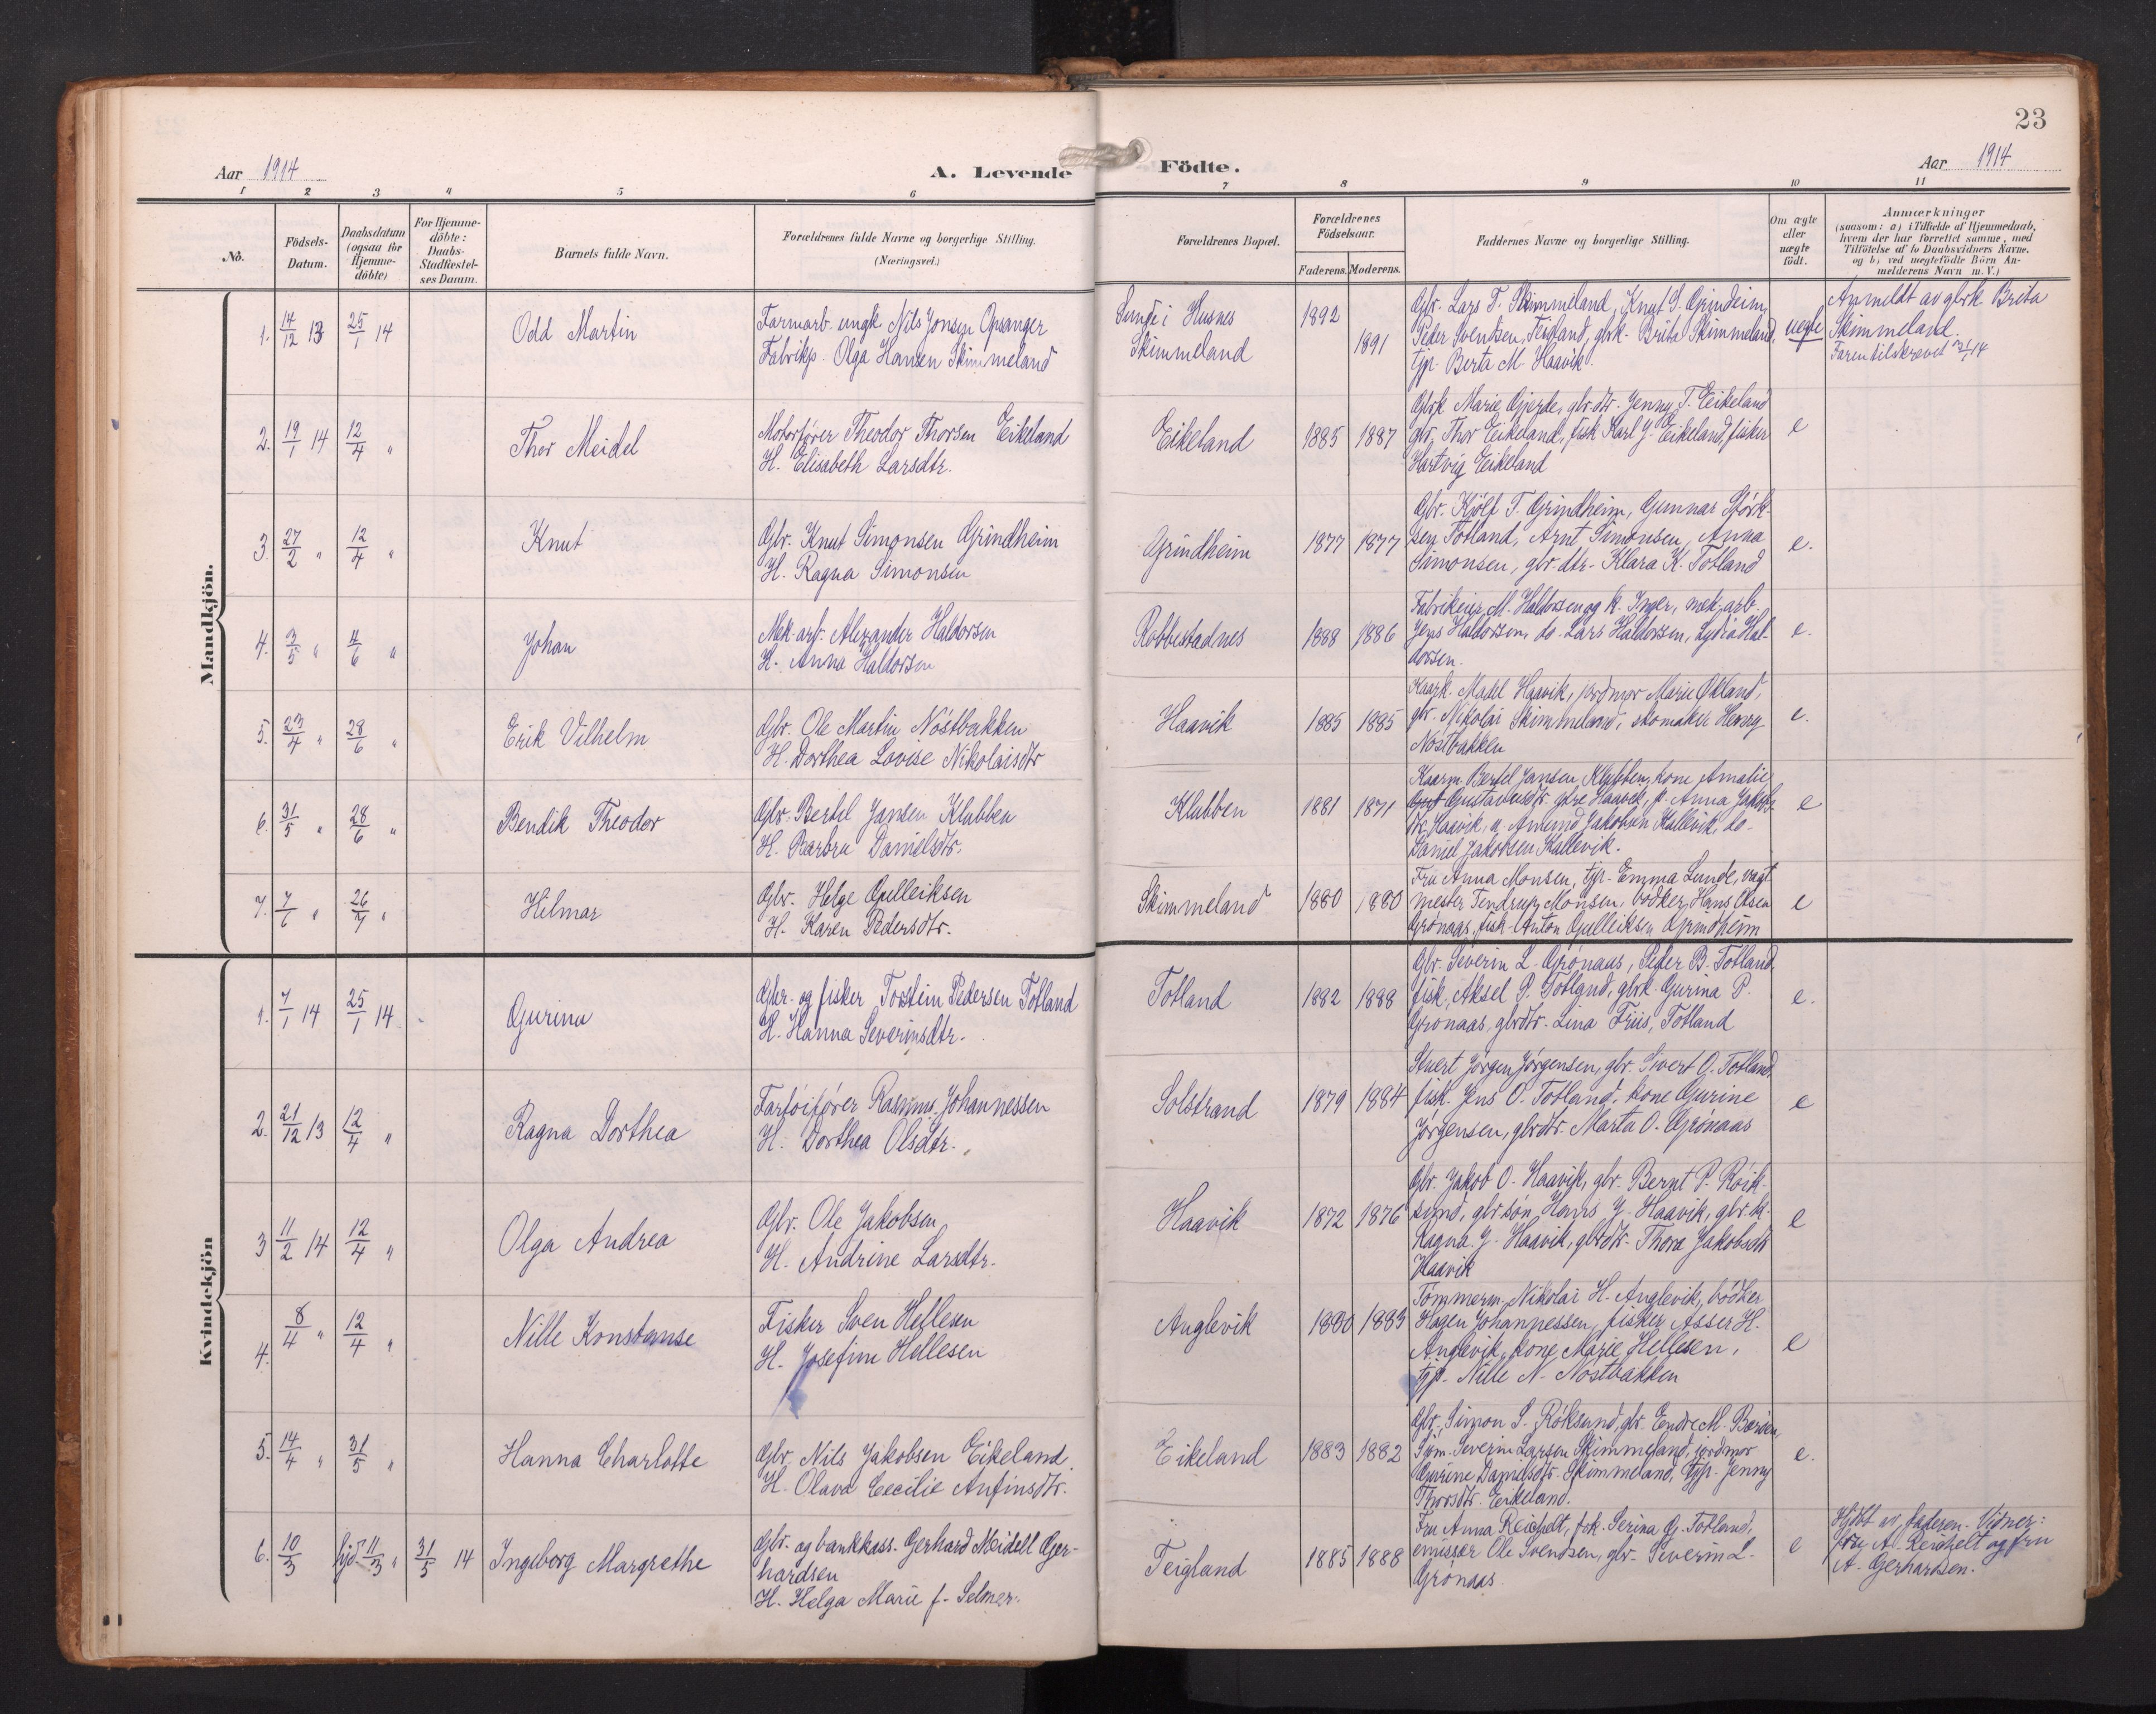 23
Aar 1914
A. Levende
Födte.
Aar 1914
1 2 3 4 5 6 7 8 9 10 11
No.
Födsels-Datum.
Daabsdatum (ogsaa for Hjemme-döbte)
For Hjemme-döbte: Daabs-Stadfæstel-ses Datum.
Barnets fulde Navn.
Forældrenes fulde Navne og borgerlige Stilling. (Næringsvei.)
Forældrenes Bopæl.
Forældrenes Födselsaar.
Faderens. Moderens.
Faddernes Navne og borgerlige Stilling.
Om ægte eller uægte födt.
Anmærkninger
(saasom: a) i Tilfælde af Hjemmedaab,
hvem der har forrettet samme, med
Tilföielse af to Daabsvidners Navne.
og b) ved uægtefödte Börn An-
melderens Navn m. V.)
Mandkjön.
1. 14/12 13 25/1 14 Odd Martin
Farmarb. ungk. Nils Jonsen Opsanger
Fabrikp. Olga Hansen Skimmeland
Sunde i Husnes 1892
Skimmeland 1891
Gbr. Lars T. Skimmeland, Knut S. Grindeim,
Peder Svendsen, Teigland, gbrk. Brita Skimmeland,
tjp. Berta M. Haavik.
uegte
Anmeldt av gbrk. Brita
Skimmeland.
2. 19/1 14 12/4 " Thor Meidel
Motorfører Theodor Thorsen Eikeland
H. Elisabeth Larsdtr.
Eikeland 1885 1887
Gbrk Marie Gjerde, gbr.dtr. Jenny T. Eikeland
gbr. Thor Eikeland, fisk Karl J. Eikeland, fisker
Hartvig Eikeland
e
3. 27/2 " 12/4 " Knut
Gbr. Knut Simonsen Grindheim
H. Ragna Simonsen
Grindheim 1877 1877
Gbr. Kjölf T. Grindheim, Gunnar Störk-
sen Totland, Arnt Simonsen, Anna
Simonsen, gbr.dtr. Klara K. Totland
e.
4. 3/5 " 4/6 " Johan
Mek.arb. Alexander Haldorsen
H. Anna Haldorsen
Robbestadnes 1888 1886
Fabrikeier M. Haldorsen og k. Inger, mek.arb.
Jens Haldorsen, do. Lars Haldorsen, Lydia Hal-
dorsen.
e.
5. 23/4 " 28/6 " Erik Vilhelm
Gbr. Ole Martin Nöstbakken
H. Dorthea Lovise Nikolaisdtr
Haavik 1885 1885
Madel Haavik, jordmor Marie Økland,
gbr. Nikolai Skimmeland, skomaker Henry
Nöstbakken
e.
6. 31/5 " 28/6 " Bendik Theodor
Gbr. Bertel Jansen Klubben
H. Barbru Danielsdtr.
Klubben 1881 1871
Kaarm. Bertel Jansen Klubben, kone Amalie
Gustavusdtr. ytre Haavik, p. Anna Jakobs
dtr. Haavik, u. Amund Jakobsen Kallevik, do.
Daniel Jakobsen Kallevik.
e
7. 7/6 " 26/7 " Hilmar
Gbr. Helge Gulleiksen
H. Karen Pedersdtr.
Skimmeland 1880 1880
Fru Anna Monsen, tjp. Emma Lunde, vagt
mester Tendrup Monsen, bödker Hans Olsen
Grönaas, fisk. Anton Gulleiksen Grindheim
e
Kvindekjön
1. 7/1 14 25/1 14 Gurina
Gbr. og fisker Torstein Pedersen Totland
H. Hanna Severinsdtr.
Totland 1882 1888
Gbr. Severin L. Grönaas, Peder B. Totland,
fisk. Aksel P. Totland, gbrk. Gurina P.
Grönaas, gbrdtr. Lina Friis, Totland
e.
2. 21/12 13 12/4 " Ragna Dorthea
Fartöifører Rasmus Johannessen
H. Dorthea Olsdtr.
Solstrand 1879 1884
Stuert Jörgen Jörgensen, gbr. Sivert O. Totland,
fisk. Jens O. Totland, kone Gurine
Jörgensen, gbrdtr. Marta O. Grönaas
e
3 11/2 14 12/4 " Olga Andrea
Gbr. Ole Jakobsen
H. Andrine Larsdtr.
Haavik 1872 1876
Gbr. Jakob O. Haavik, gbr. Bernt P. Röik-
sund, gbr.sön Hans J. Haavik, gbr.k.
Ragna J. Haavik, gbrdtr. Thora Jakobsdtr
Haavik
e
4. 8/4 " 12/4 " Nille Konstanse
Fisker Sven Hellesen
H. Josefine Hellesen
Anglevik 1880 1883
Tömmerm. Nikolai H. Anglevik, bödker
Hagen Johannessen, fisker Asser H.
Anglevik, kone Marie Hellesen,
tjp. Nille N. Nöstbakken
e
5. 14/4 " 31/5 " Hanna Charlotte
Gbr. Nils Jakobsen Eikeland
H. Olava Cecilie Anfinsdtr.
Eikeland 1883 1882
Gbr. Simon S. Röksund, gbr. Endre M.
Severin Larsen Skimmeland, jordmor
Gurine Danielsdtr. Skimmeland, tjp. Jenny
Thorsdtr. Eikeland.
e.
6. 10/3 hjd. 11/3 " 31/5 14 Ingeborg Margrethe
Gbr. og bankkass. Gerhard Meidell Ger-
hardsen
H. Helga Marie f. Selmer.
Teigland 1885 1888
Fru Anna Reichelt, frk. Serina G. Totland,
emissær Ole Svendsen, gbr. Severin L.
Grönaas.
e
Hjdbt av faderen. Vidner:
fru A. Reichelt og fru
A. Gerhardsen.